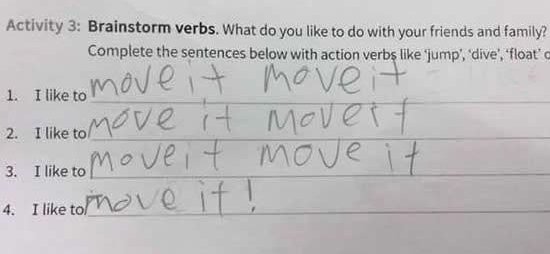 Activity 3: Brainstorm verbs. What do you like to do with your friends and family?
Complete the sentences below with action verbs like 'jump', 'dive', 'float'
1. I like to move it move it
2. I like to move it move it
3. I like to move it move it
4. I like to move it!